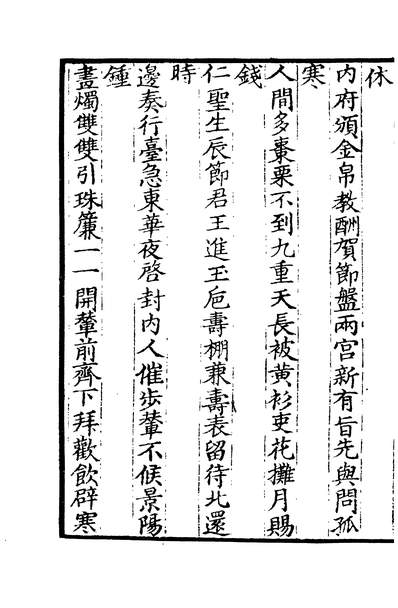 休
内府頒金帛教酬賀節盤兩宮新有旨先與問孤
寒
人間多棗栗不到九重天長被黃衫吏花攤月賜
錢
仁聖生辰節君王進玉巵壽棚兼壽表留待北還
時
邊奏行臺急東華夜啓封内人催步輦不候景陽
鍾
畫燭雙雙引珠簾一一開輦前齊下拜歡飲辟寒